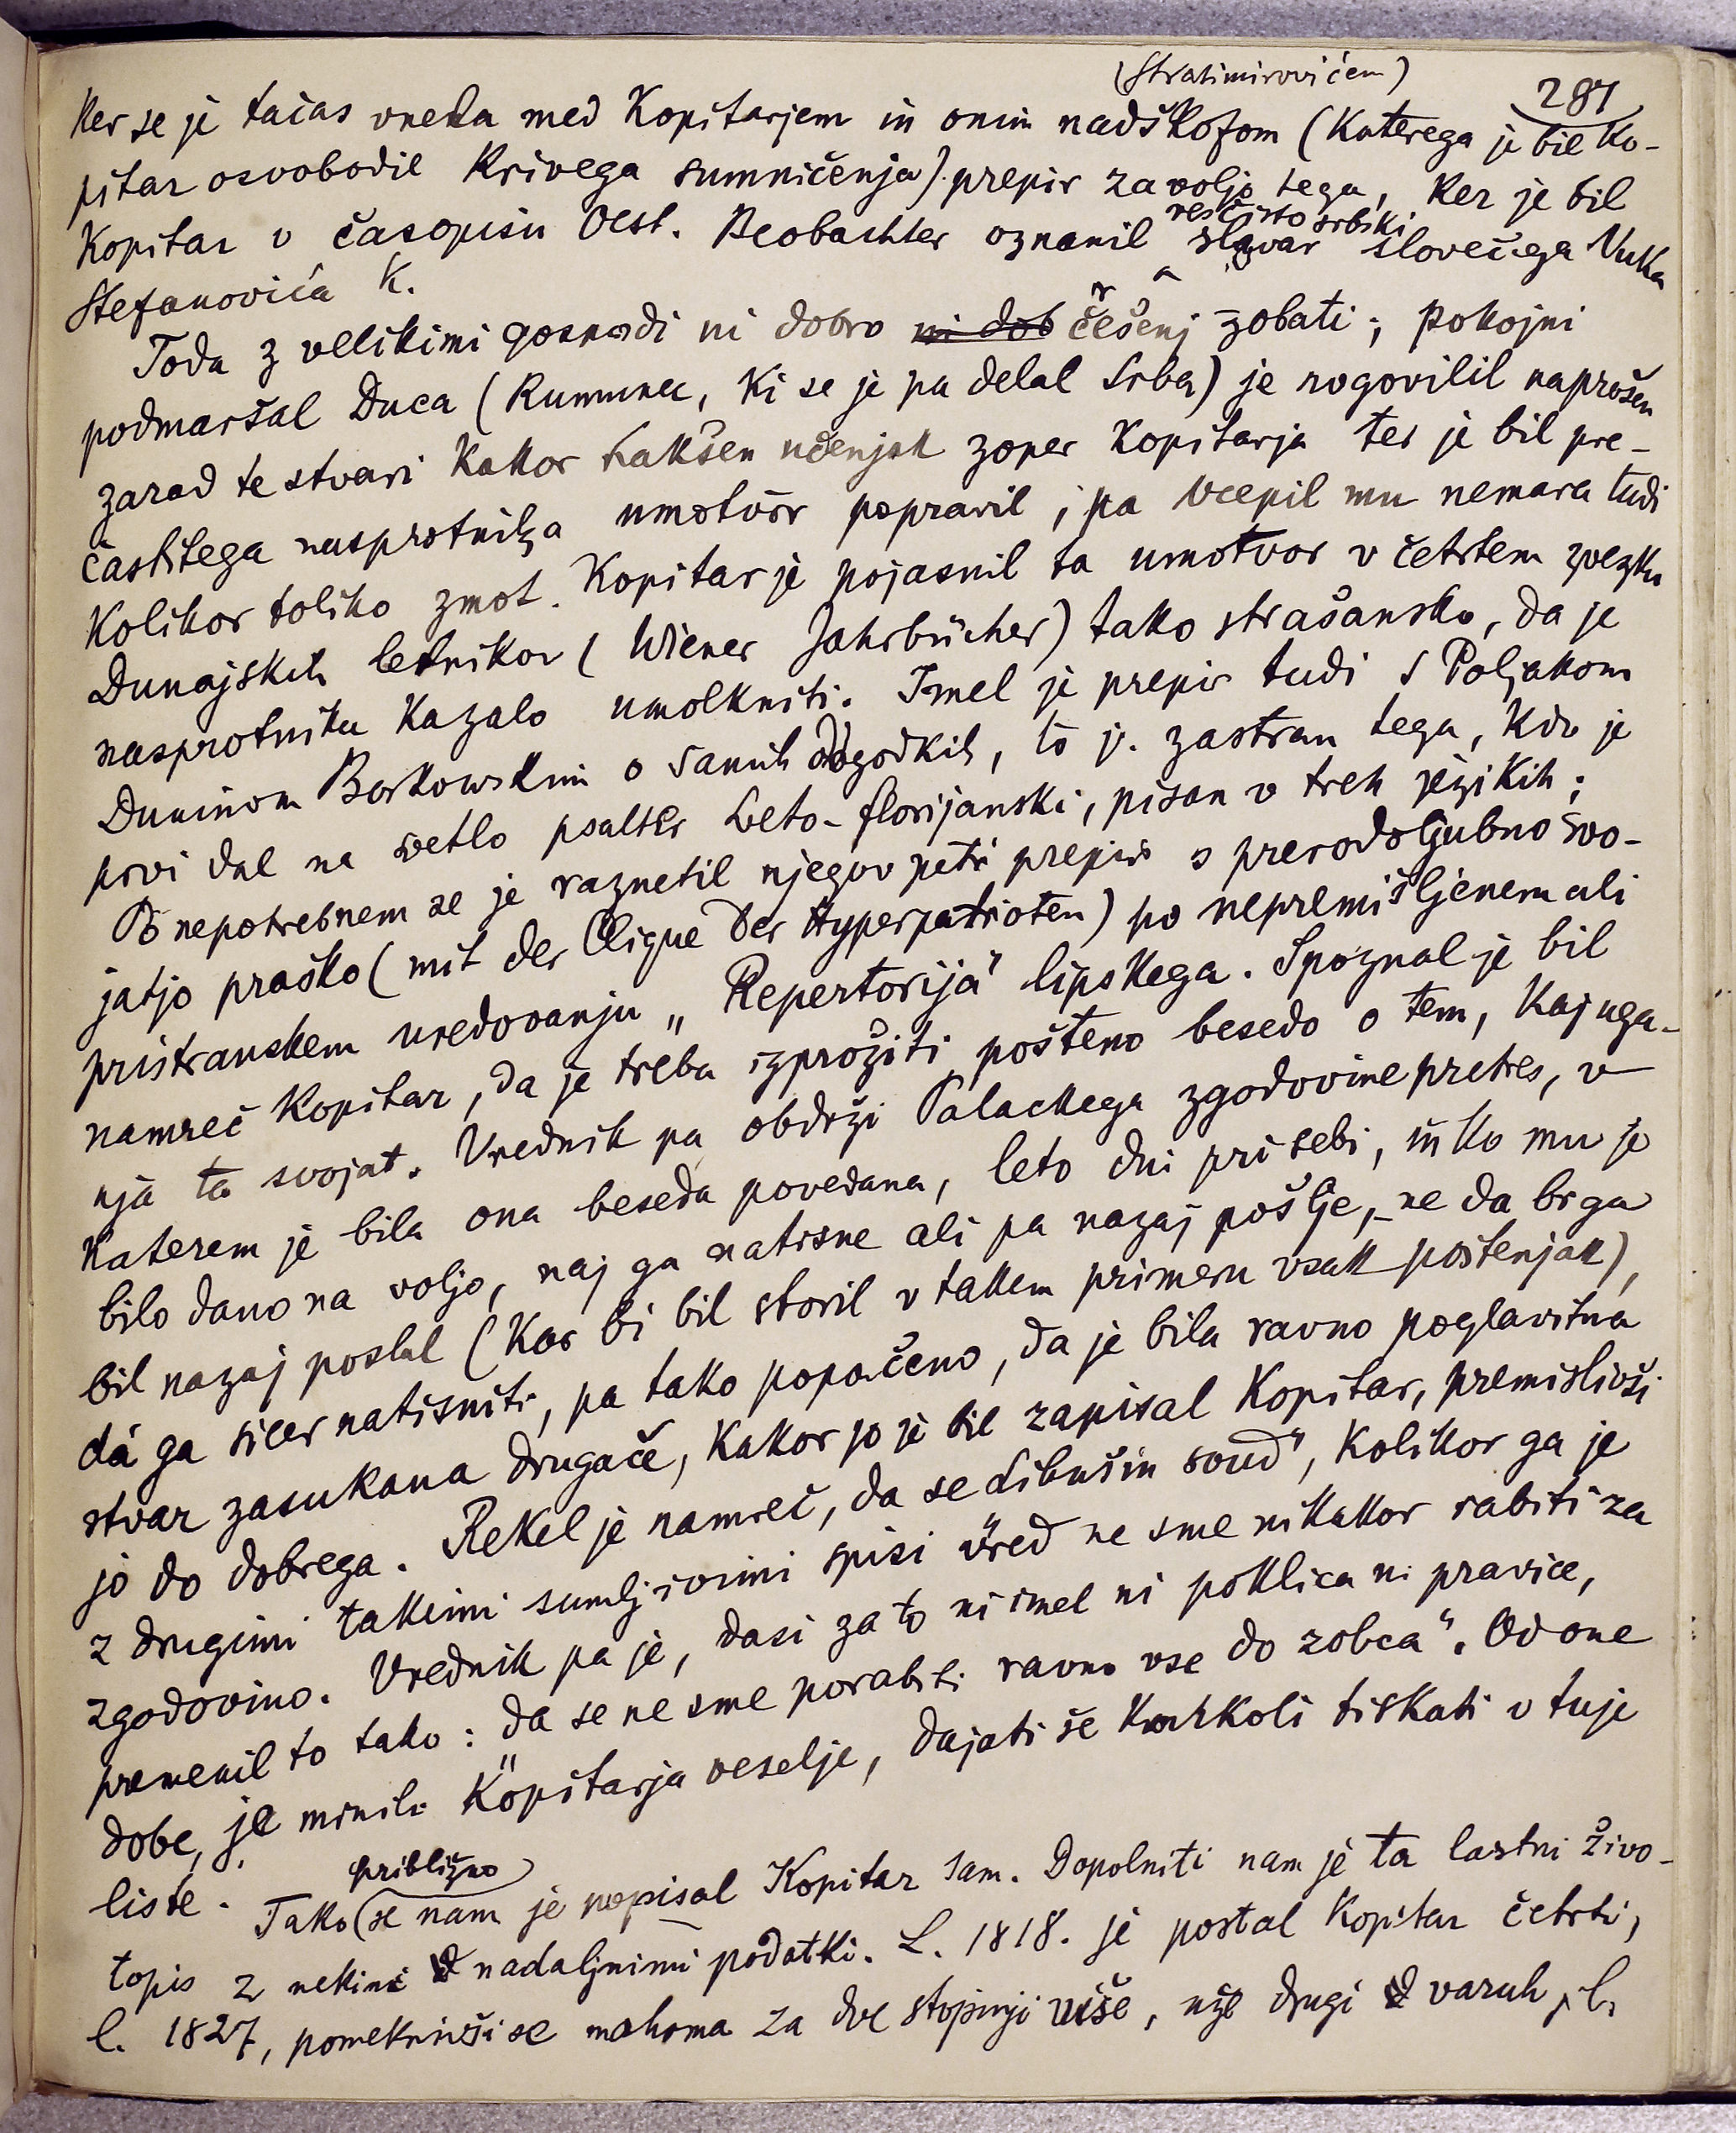 (Stratimirovićem)
281
Ker se je tačas vnela med Kopitarjem in onim nadškofom (katerega je bil Ko-
pitar osvobodil krivega sumničenja) prepir zavoljo tega, ker je bil
Kopitar v časopisu Oest. Beobachter oznanil slovar slovečega Vuka
resčisto srbski
Stefanovića K.
Toda z velikimi gospodi ni dobro ni dob črešenj zobati; pokojni
podmaršal Duca (Rumunec, ki se je pa delal Srba) je rogovilil naprošen
zarad te stvari kakor kakšen učenjak zoper Kopitarja ter je bil pre-
častitega nasprotnika umotvor popravil, pa vcepil mu nemara tudi
kolikor toliko zmot. Kopitar je pojasnil ta umotvor v četrtem zvezku
Dunajskih letnikov (Wiener Jahrbücher) tako strašansko, da je
nasprotniku kazalo umolkniti. Imel je prepir tudi s Poljakom
Duninom Borkowskim o samih dogodkih, to j. zastran tega, kdo je
prvi dal na svetlo psalter sveto-florijanski, pisan v treh jezikih;
Po nepotrebnem se je raznetil njegov peti prepir s prerodoljubno svo-
jatjo praško (mit der Clique der Hyperpatrioten) po nepremišljenem ali
pristranskem uredovanju „Repertorija" lipskega. Spoznal je bil
namreč Kopitar, da je treba izprožiti pošteno besedo o tem, kaj uga-
nja ta svojat. Vrednik pa obdrži Palackega zgodovine pretres, v
katerem je bila ona beseda povedana, leto dni pri sebi, in ko mu je
bilo dano na voljo, naj ga natisne ali pa nazaj pošlje, – ne da bi ga
bil nazaj poslal (kar bi bil storil v takem primeru vsak poštenjak),
dá ga sicer natisniti, pa tako popačeno, da je bila ravno poglavitna
stvar zasukana drugače, kakor jo je bil zapisal Kopitar, premislivši
jo do dobrega. Rekel je namreč, da se „Libušin soud", kolikor ga je
z drugimi takimi sumljivimi spisi vred ne sme nikakor rabiti za
zgodovino. Vrednik pa je, dasi za to ni imel ni poklica ni pravice,
premenil to tako: „da se ne sme porabiti ravno vse do zobca". Od one
dobe, je minilo Kopitarja veselje, dajati še karkoli tiskati v tuje
liste.
približno
Tako se nam je popisal Kopitar sam. Dopolniti nam je ta lastni živo-
topis z nekimi nadaljnimi podatki. L. 1818. je postal Kopitar četrti,
l. 1827, pomeknivši se mahoma za dve stopinji više, uže drugi varuh, l.